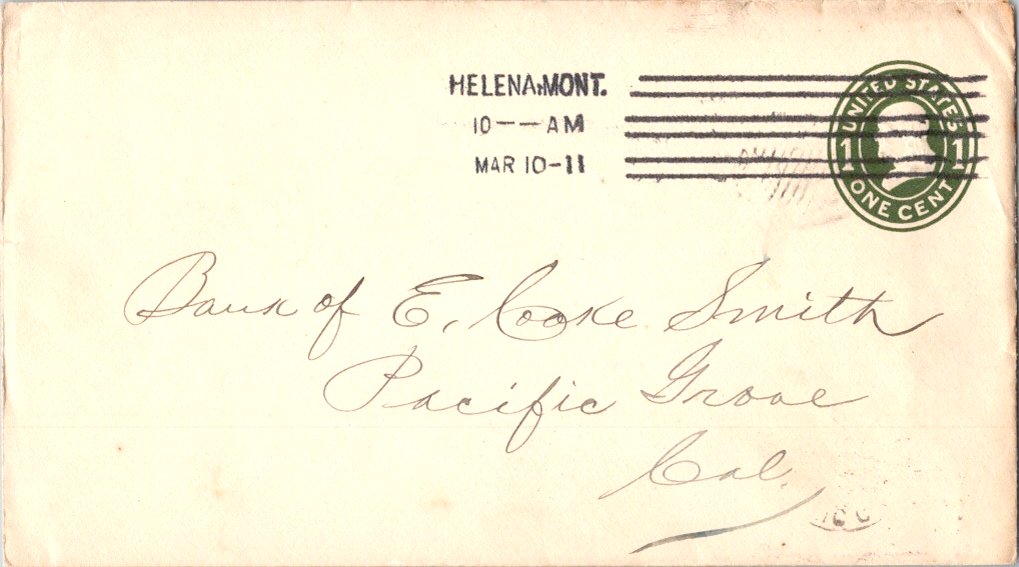 HELENA, MONT.
10 — — AM
MAR 10-11
UNITED STATES
1 1
ONE CENT
Bank of E. Cooke Smith
Pacific Grove
Cal.